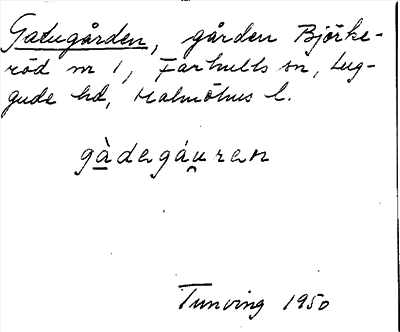 Gatugården, gården Björke-
röd nr 1, Farhults sn, Lug-
gude hd, Malmöhus l.
gà̠degáu̯ren
Tunving 1950